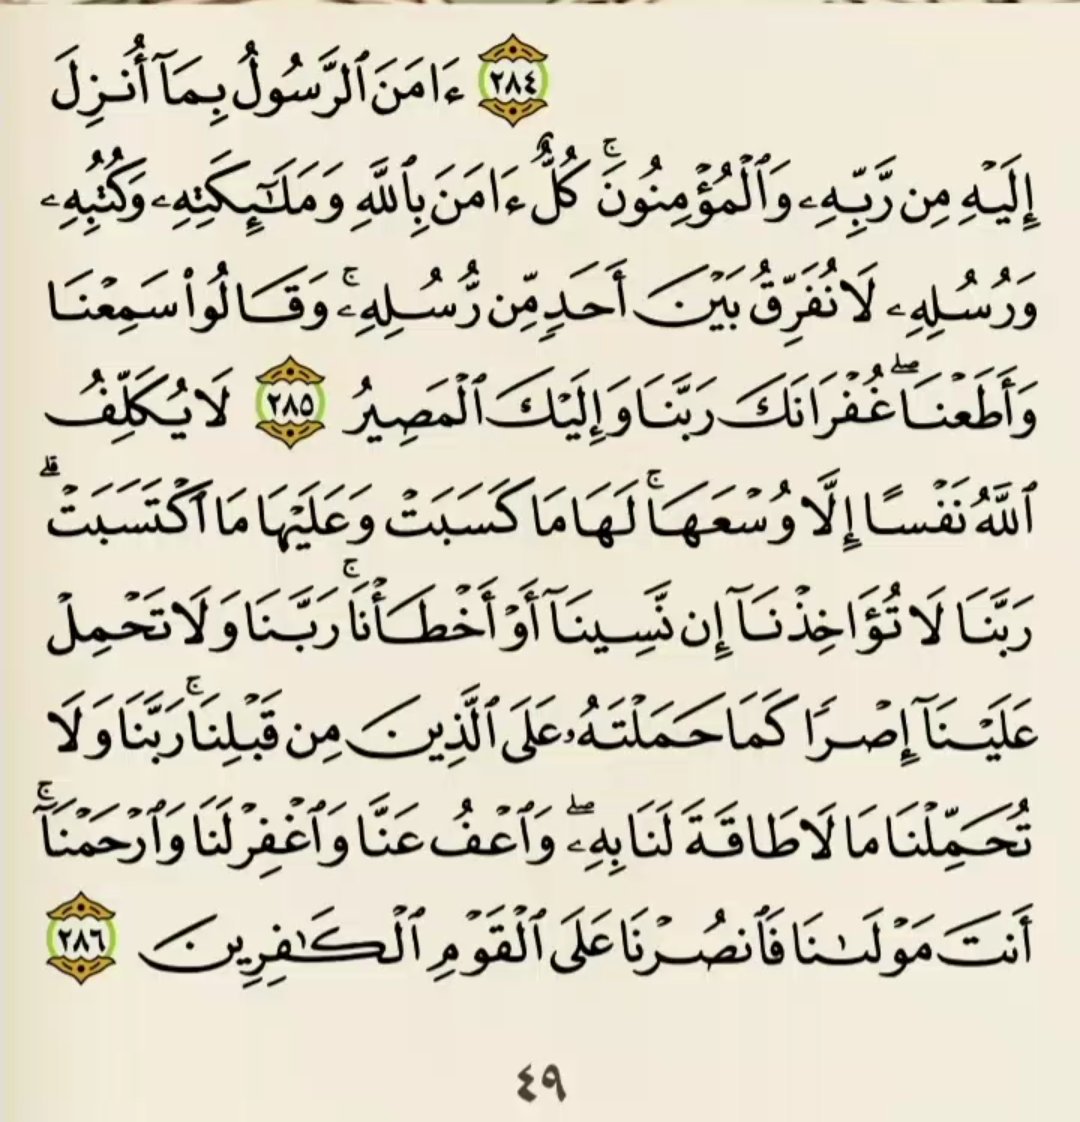 ٢٨٤ ءَامَنَ ٱلرَّسُولُ بِمَآ أُنزِلَ
إِلَيْهِ مِن رَّبِّهِۦ وَٱلْمُؤْمِنُونَۚ كُلٌّ ءَامَنَ بِٱللَّهِ وَمَلَـٰٓئِكَتِهِۦ وَكُتُبِهِۦ
وَرُسُلِهِۦ لَا نُفَرِّقُ بَيْنَ أَحَدٍ مِّن رُّسُلِهِۦۚ وَقَالُوا۟ سَمِعْنَا
وَأَطَعْنَاۖ غُفْرَانَكَ رَبَّنَا وَإِلَيْكَ ٱلْمَصِيرُ ٢٨٥ لَا يُكَلِّفُ
ٱللَّهُ نَفْسًا إِلَّا وُسْعَهَاۚ لَهَا مَا كَسَبَتْ وَعَلَيْهَا مَا ٱكْتَسَبَتْۗ
رَبَّنَا لَا تُؤَاخِذْنَآ إِن نَّسِينَآ أَوْ أَخْطَأْنَاۚ رَبَّنَا وَلَا تَحْمِلْ
عَلَيْنَآ إِصْرًا كَمَا حَمَلْتَهُۥ عَلَى ٱلَّذِينَ مِن قَبْلِنَاۚ رَبَّنَا وَلَا
تُحَمِّلْنَا مَا لَا طَاقَةَ لَنَا بِهِۦۖ وَٱعْفُ عَنَّا وَٱغْفِرْ لَنَا وَٱرْحَمْنَآۚ
أَنتَ مَوْلَىٰنَا فَٱنصُرْنَا عَلَى ٱلْقَوْمِ ٱلْكَـٰفِرِينَ ٢٨٦
٤٩